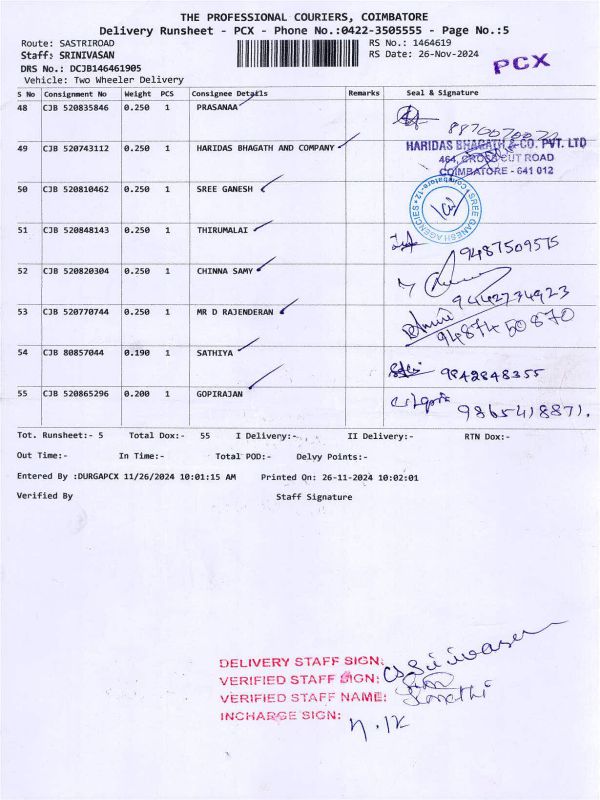 THE PROFESSIONAL COURIERS, COIMBATORE
Delivery Runsheet - PCX - Phone No.:0422-3505555 - Page No.:5
Route: SASTRIROAD RS No.: 1464619
Staff: SRINIVASAN RS Date: 26-Nov-2024 PCX
DRS No.: DCJB146461905
Vehicle: Two Wheeler Delivery
S No Consignment No Weight PCS Consignee Details Remarks Seal & Signature
48 CJB 520835846 0.250 1 PRASANAA
49 CJB 520743112 0.250 1 HARIDAS BHAGATH AND COMPANY HARIDAS BHAGATH & CO. PVT. LTD
464, CROSS CUT ROAD
COIMBATORE - 641 012
50 CJB 520810462 0.250 1 SREE GANESH SREE GANESH AGENCIES * Coimbatore-12 *
51 CJB 520848143 0.250 1 THIRUMALAI 9487509575
52 CJB 520820304 0.250 1 CHINNA SAMY 9442734923
53 CJB 520770744 0.250 1 MR D RAJENDERAN 9487450870
54 CJB 80857044 0.190 1 SATHIYA 9842848355
55 CJB 520865296 0.200 1 GOPIRAJAN 9865418871.
Tot. Runsheet:- 5 Total Dox:- 55 I Delivery:- II Delivery:- RTN Dox:-
Out Time:- In Time:- Total POD:- Delvy Points:-
Entered By :DURGAPCX 11/26/2024 10:01:15 AM Printed On: 26-11-2024 10:02:01
Verified By Staff Signature
DELIVERY STAFF SIGN: CS Srinivasan
VERIFIED STAFF SIGN:
VERIFIED STAFF NAME:
INCHARGE SIGN: